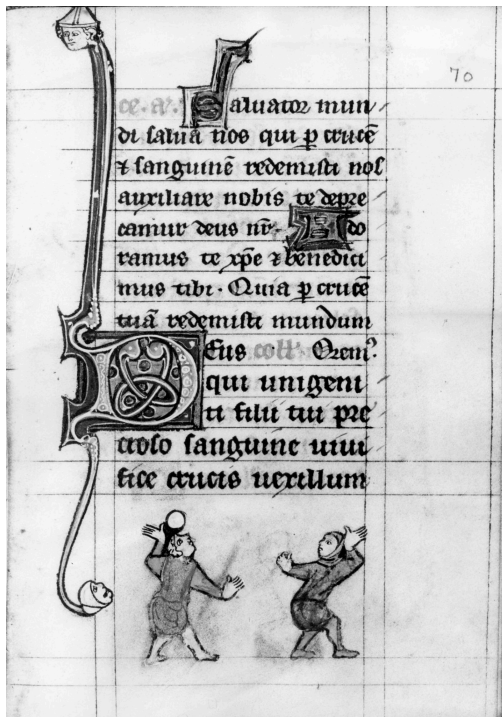 70
ce. a. Saluator mun
di salua nos qui p crucē
⁊ sanguinē redemisti nos
auxiliare nobis te depre
camur deus nr̄. Ado
ramus te xp̄e ⁊ benedici
mus tibi. Quia p crucē
tuā redemisti mundum
Deus coll'. Orem᷒.
qui unigeni
ti filii tui pre
cioso sanguine uiui
fice crucis uexillum